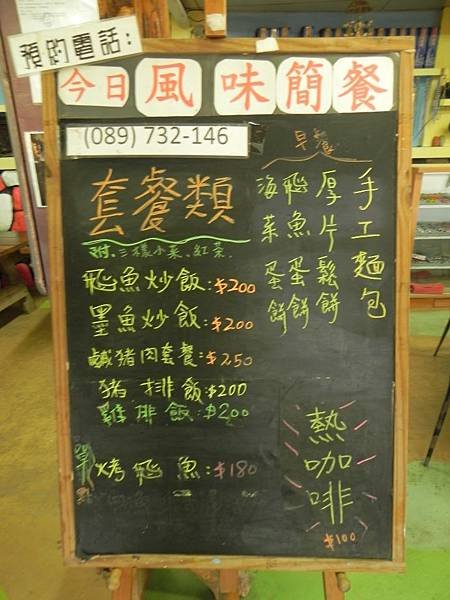 預約電話:
今日風味簡餐
(089) 732-146
套餐類
附.三樣小菜.紅茶.
飛魚炒飯:$200
墨魚炒飯:$200
鹹豬肉套餐:$250
豬排飯:$200
雞排飯:$200
單點
烤飛魚:$180
早餐
手工麵包
厚片鬆餅
飛魚蛋餅
海菜蛋餅
熱咖啡
$100